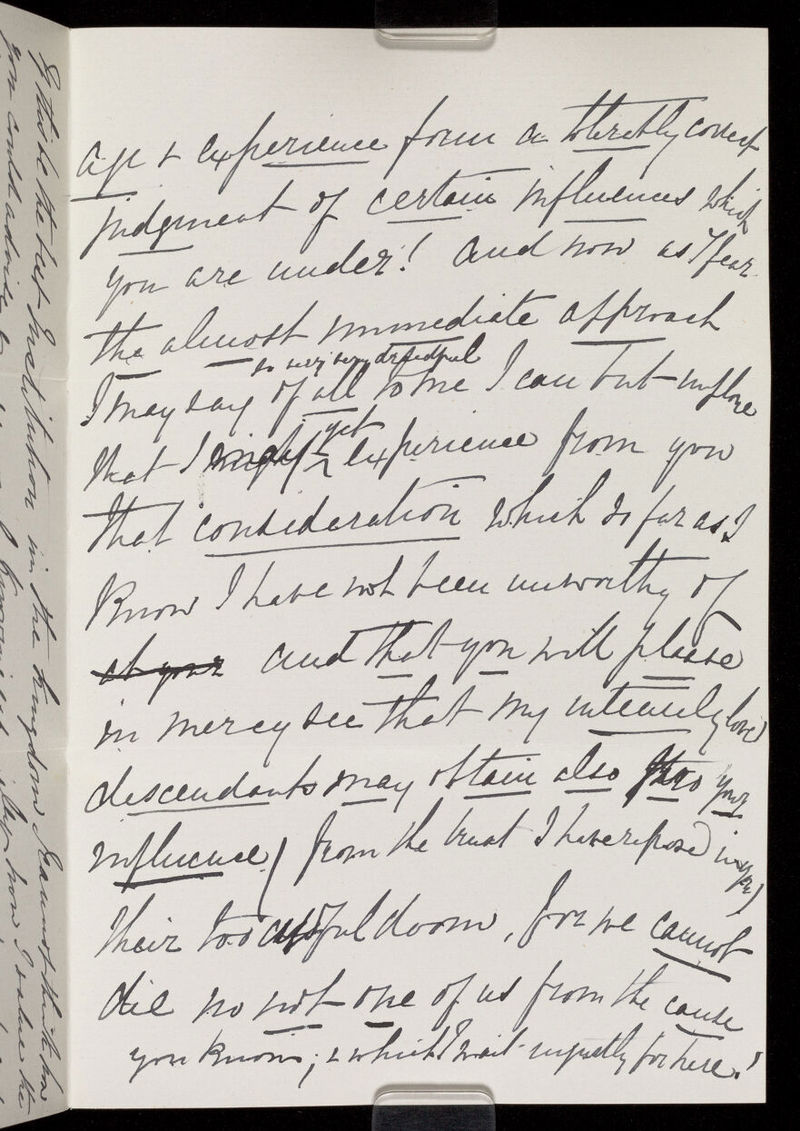 age & experience form a tolerably correct
judgment of certain influences which
you are under! And now as I fear
the almost immediate approach
so very very dreadful
I may say of all to me I can but implore
that I might yet experience from you
that consideration which so far as I
know I have not been unworthy of
at your and that you will please
in mercy see that my intensely loved
descendants may obtain also thro your
influence (from the trust I have reposed in you)
their too awful doom, for we cannot
die no not one of us from the cause
you know; & which I wait here!
If this be the best Institution in the Kingdom I cannot think how
you could advise
how I value the